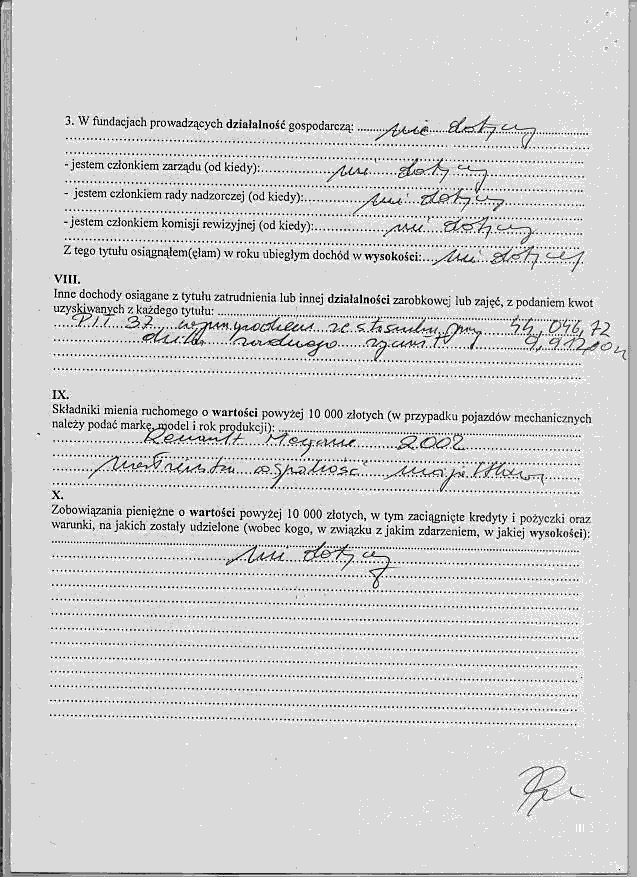 3. W fundacjach prowadzących działalność gospodarczą: nie dotyczy
- jestem członkiem zarządu (od kiedy): nie dotyczy
- jestem członkiem rady nadzorczej (od kiedy): nie dotyczy
- jestem członkiem komisji rewizyjnej (od kiedy): nie dotyczy
Z tego tytułu osiągnąłem(ęłam) w roku ubiegłym dochód w wysokości: nie dotyczy
VIII.
Inne dochody osiągane z tytułu zatrudnienia lub innej działalności zarobkowej lub zajęć, z podaniem kwot
uzyskiwanych z każdego tytułu:
PIT 37 wynagrodzenie ze stosunku pracy 44,046,72
dieta radnego 9,912,00
IX.
Składniki mienia ruchomego o wartości powyżej 10 000 złotych (w przypadku pojazdów mechanicznych
należy podać markę, model i rok produkcji):
Renault Megane 2002
małżeńska wspólność majątkowa
X.
Zobowiązania pieniężne o wartości powyżej 10 000 złotych, w tym zaciągnięte kredyty i pożyczki oraz
warunki, na jakich zostały udzielone (wobec kogo, w związku z jakim zdarzeniem, w jakiej wysokości):
nie dotyczy